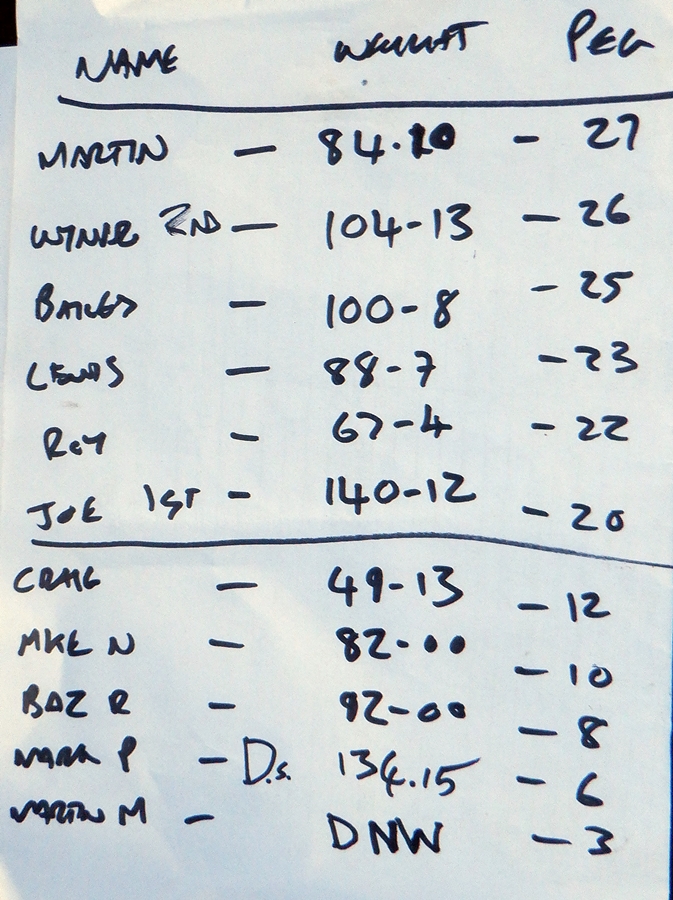 NAME WEIGHT PEG
MARTIN - 84.10 - 27
WYNNE 2ND - 104-13 - 26
BAILEY - 100-8 - 25
LEWIS - 88-7 - 23
ROY - 67-4 - 22
JOE 1ST - 140-12 - 20
CRAIG - 49-13 - 12
MIKE N - 82-00 - 10
BAZ R - 92-00 - 8
MARK P - D.s. 134.15 - 6
MARTIN M - DNW - 3